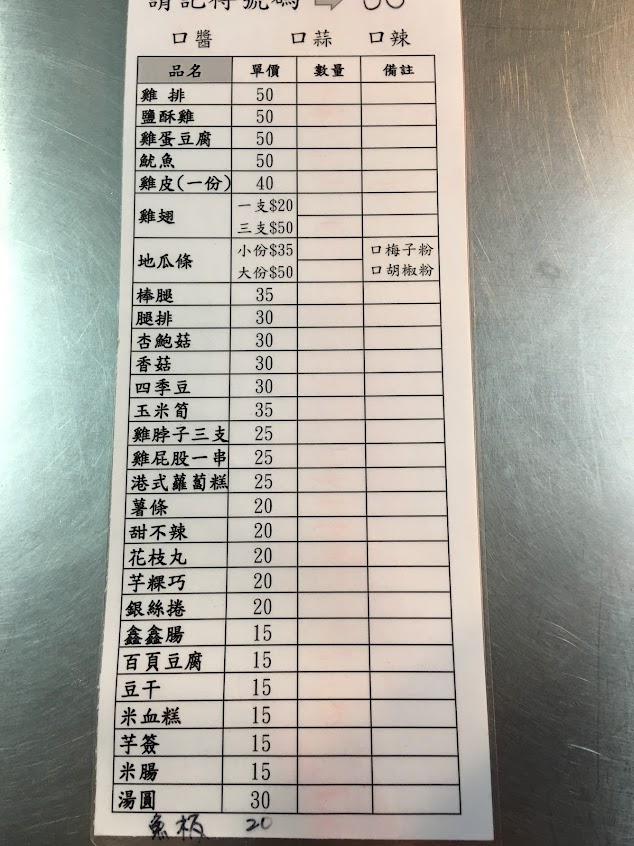 請記得號碼
口醬 口蒜 口辣
品名 單價 數量 備註
雞 排 50
鹽酥雞 50
雞蛋豆腐 50
魷魚 50
雞皮(一份) 40
雞翅 一支$20
三支$50
地瓜條 小份$35 口梅子粉
大份$50 口胡椒粉
棒腿 35
腿排 30
杏鮑菇 30
香菇 30
四季豆 30
玉米筍 35
雞脖子三支 25
雞屁股一串 25
港式蘿蔔糕 25
薯條 20
甜不辣 20
花枝丸 20
芋粿巧 20
銀絲捲 20
鑫鑫腸 15
百頁豆腐 15
豆干 15
米血糕 15
芋簽 15
米腸 15
湯圓 30
魚板 20